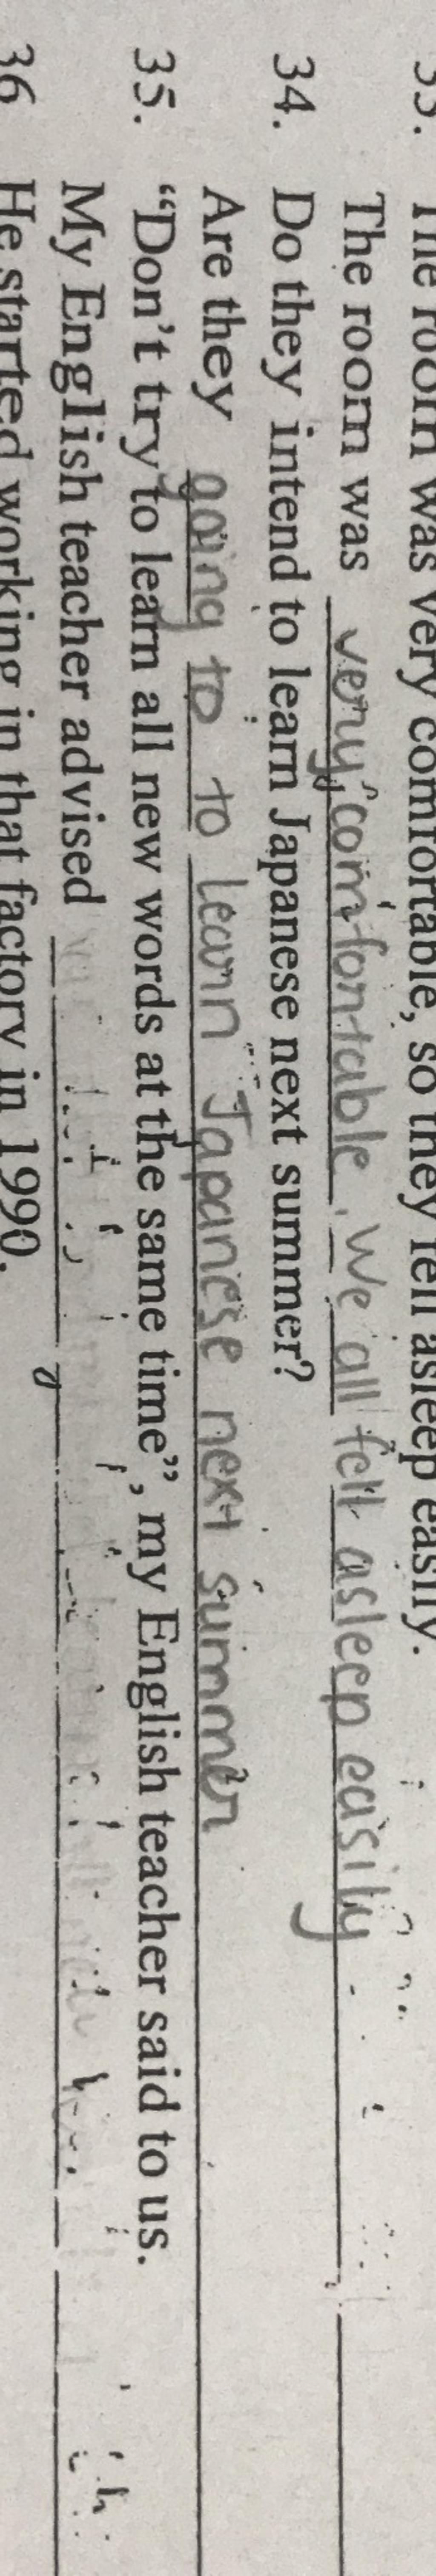 33. The room was very comfortable, so they fell asleep easily.
The room was very comfontable. We all fell asleep easily.
34. Do they intend to learn Japanese next summer?
Are they going to to learn Japanese next summer
35. “Don’t try to learn all new words at the same time”, my English teacher said to us.
My English teacher advised
36 He started working in that factory in 1990.